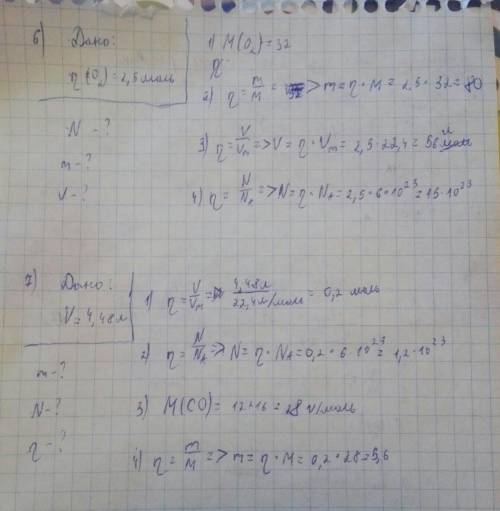 6) Дано:
η(O₂) = 2,5 моль
N - ?
m - ?
V - ?
1) M(O₂) = 32
2) η = m/M => m = η · M = 2,5 · 32 = 80
3) η = V/Vm => V = η · Vm = 2,5 · 22,4 = 56 л
4) η = N/NA => N = η · NA = 2,5 · 6 · 10²³ = 15 · 10²³
7) Дано:
V = 4,48 л
m - ?
N - ?
η - ?
1) η = V/Vm = 4,48 л / 22,4 л/моль = 0,2 моль
2) η = N/NA => N = η · NA = 0,2 · 6 · 10²³ = 1,2 · 10²³
3) M(CO) = 12 + 16 = 28 г/моль
4) η = m/M => m = η · M = 0,2 · 28 = 5,6